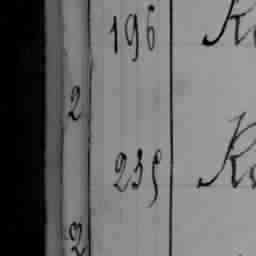 196
2
235
2